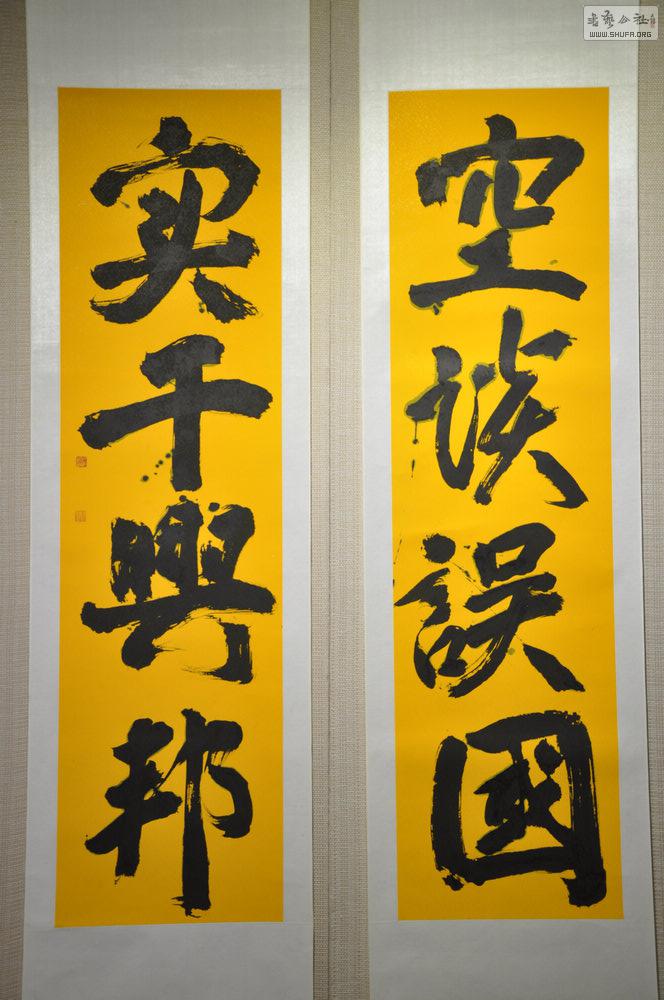 空谈誤國
实干興邦
书艺公社
WWW.SHUFA.ORG